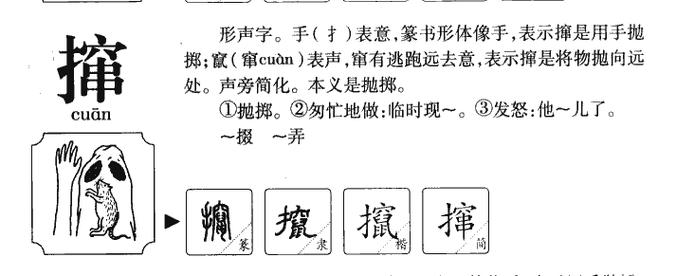 撺
cuān
形声字。手(扌)表意,篆书形体像手,表示撺是用手抛
掷;竄(窜cuàn)表声,窜有逃跑远去意,表示撺是将物抛向远
处。声旁简化。本义是抛掷。
①抛掷。②匆忙地做:临时现～。③发怒:他～儿了。
～掇 ～弄
攛 攛 攛 撺
篆 隶 楷 简